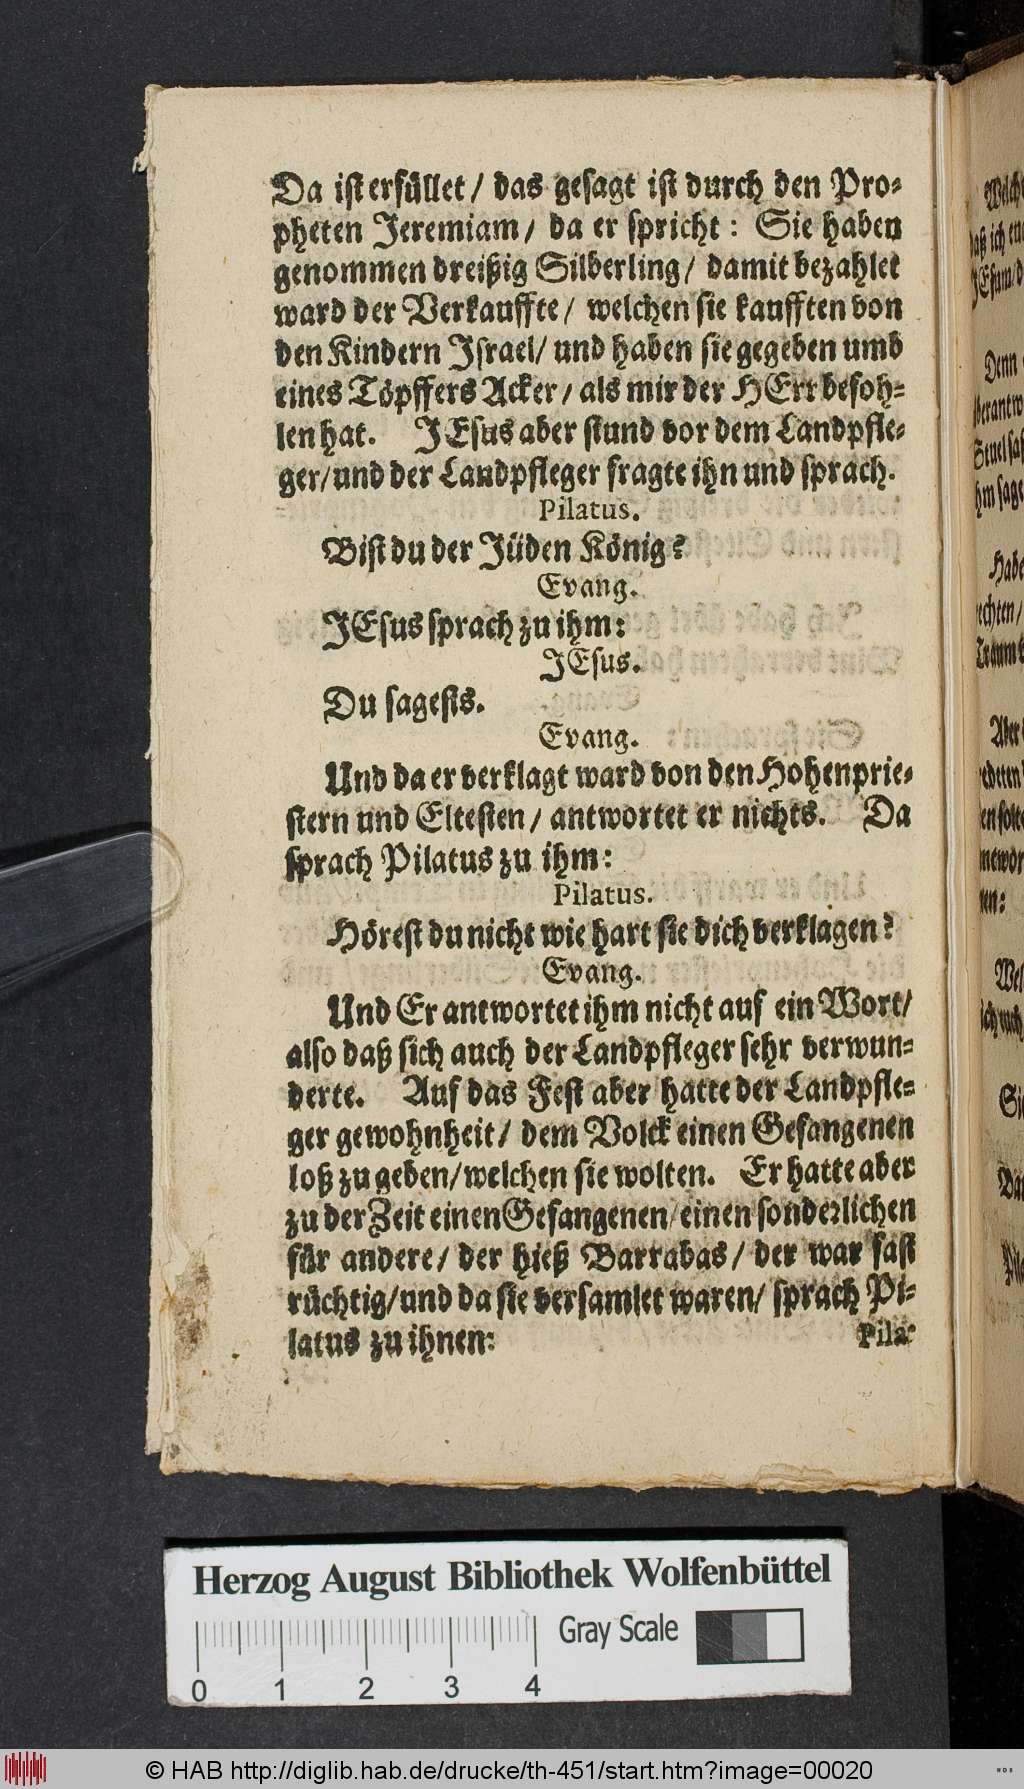 Da ist erfüllet / das gesagt ist durch den Pro-
pheten Jeremiam / da er spricht : Sie haben
genommen dreißig Silberling / damit bezahlet
ward der Verkauffte / welchen sie kaufften von
den Kindern Israel / und haben sie gegeben umb
eines Töpffers Acker / als mir der HErr befoh-
len hat. JEsus aber stund vor dem Landpfle-
ger / und der Landpfleger fragte ihn und sprach.
Pilatus.
Bist du der Jüden König?
Evang.
JEsus sprach zu ihm:
JEsus.
Du sagests.
Evang.
Und da er verklagt ward von den Hohenprie-
stern und Eltesten / antwortet er nichts. Da
sprach Pilatus zu ihm:
Pilatus.
Hörest du nicht wie hart sie dich verklagen?
Evang.
Und Er antwortet ihm nicht auf ein Wort /
also daß sich auch der Landpfleger sehr verwun-
derte. Auf das Fest aber hatte der Landpfle-
ger gewohnheit / dem Volck einen Gefangenen
loß zu geben / welchen sie wolten. Er hatte aber
zu der Zeit einen Gefangenen / einen sonderlichen
für andere / der hieß Barrabas / der war fast
rüchtig / und da sie versamlet waren / sprach Pi-
latus zu ihnen:
Pila-
Herzog August Bibliothek Wolfenbüttel
Gray Scale
0 1 2 3 4
© HAB http://diglib.hab.de/drucke/th-451/start.htm?image=00020